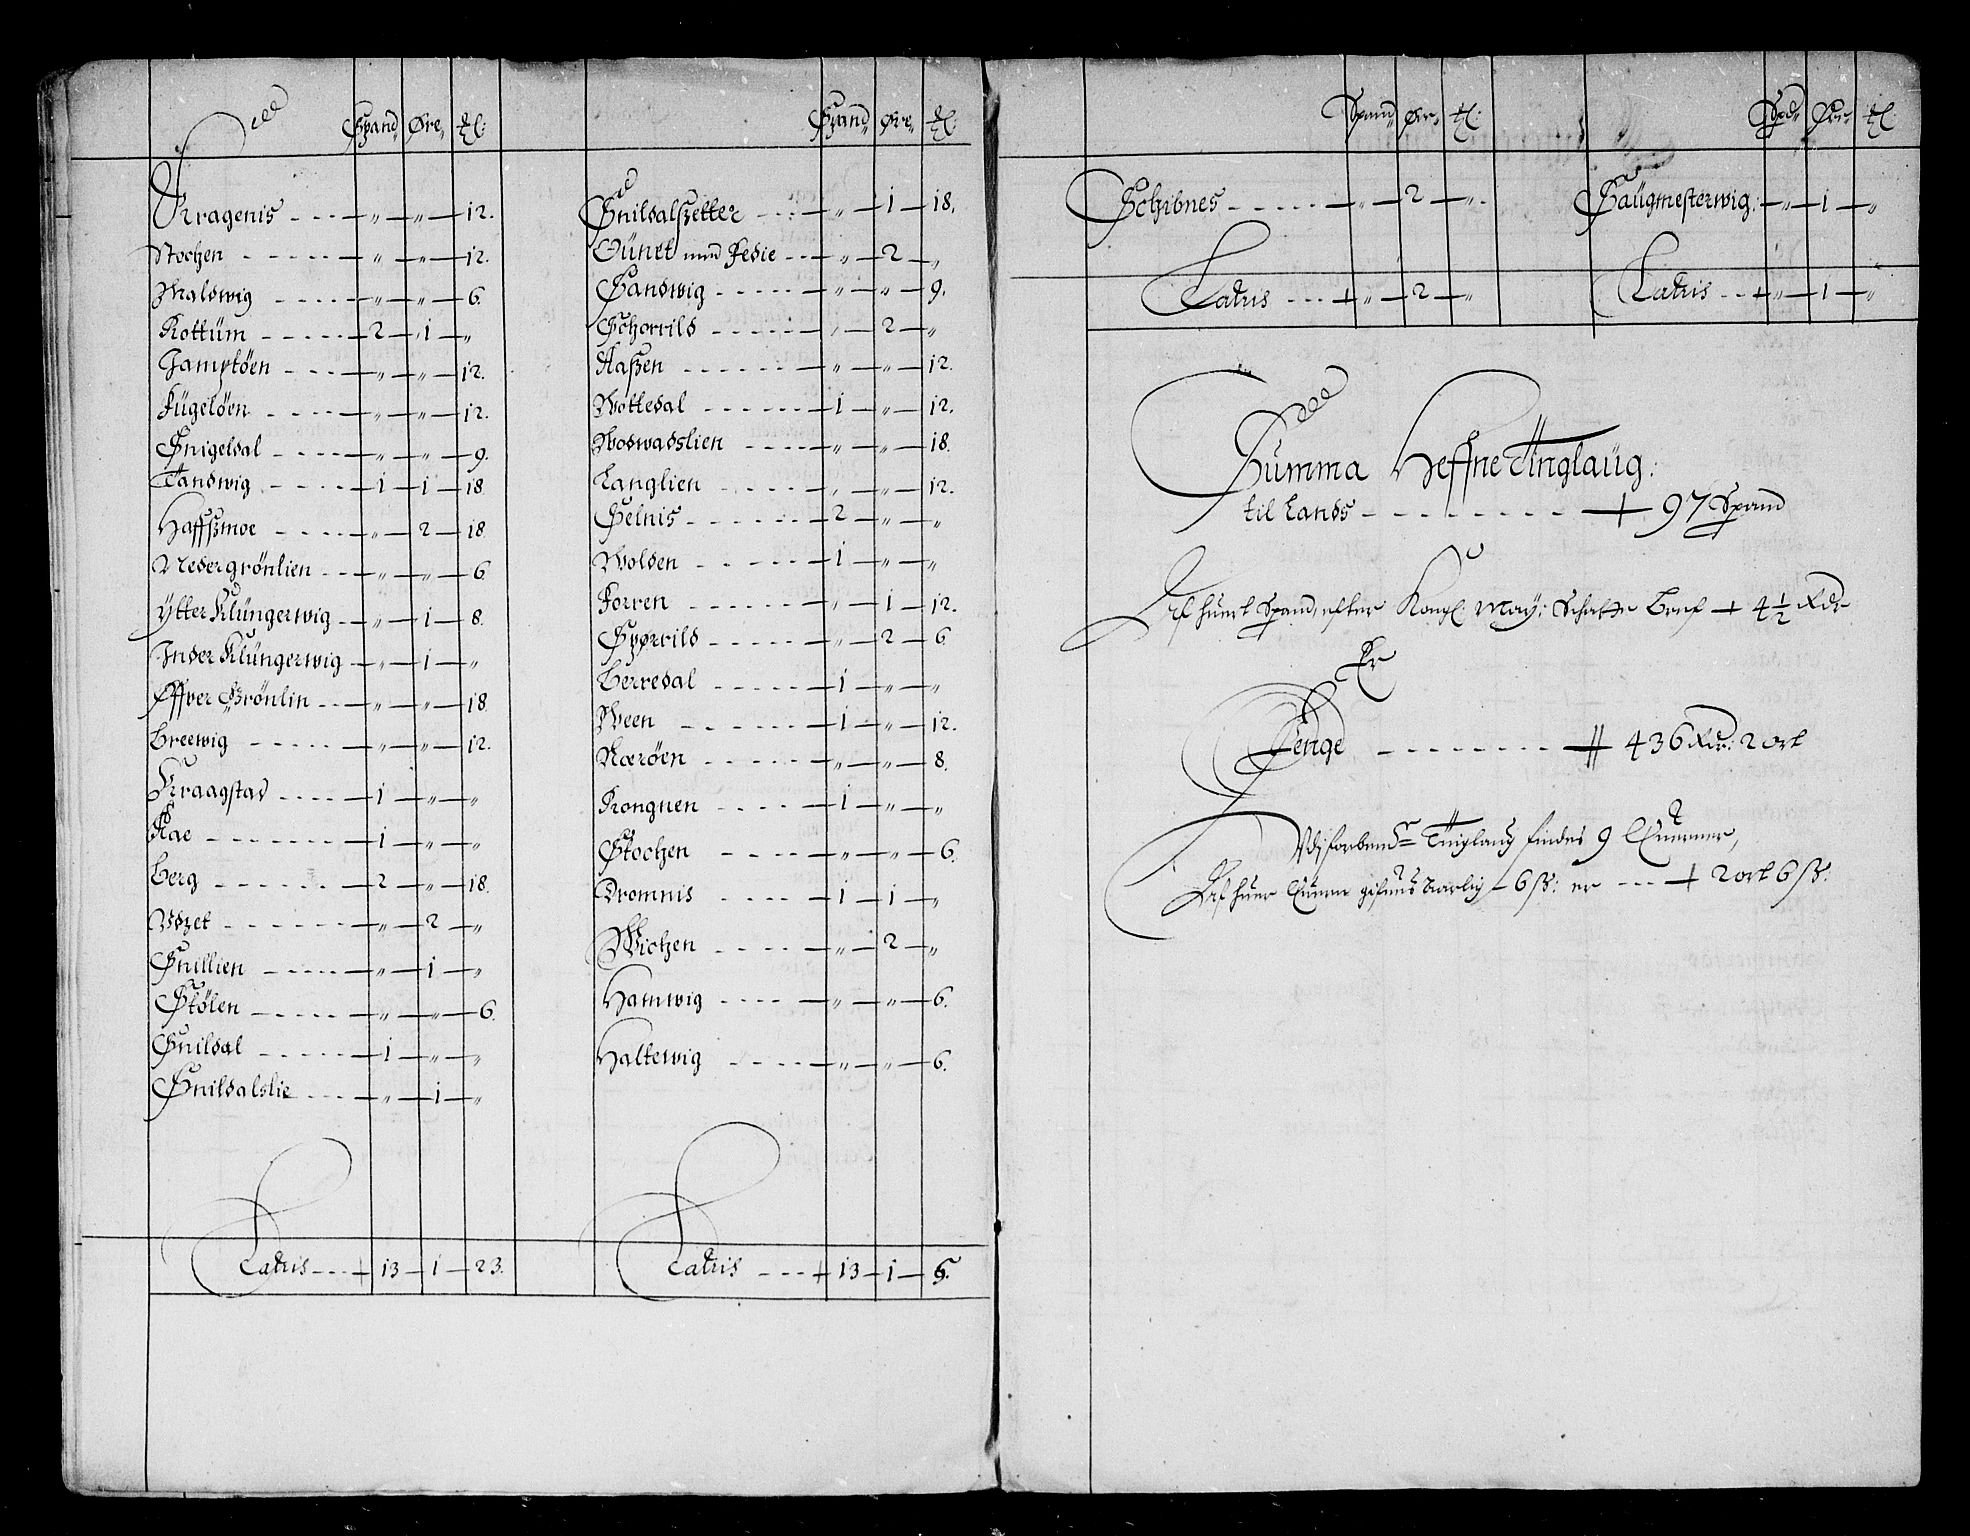 Spand Øre
Kragenis - - - - - " - " - 12.
Stochen - - - - - " - " - 12.
Maldwig - - - - - " - " - 6.
Rottüm - - - - - 2 - 1 - "
Jamptöen - - - - - " - " - 12.
Fügelöen - - - - - " - " - 12.
Snigeldal - - - - - " - " - 9.
Tandwig - - - - - 1 - 1 - 18
Haffßmoe - - - - - " - 2 - 18
Nedergrönlien - - - " - " - 6
Ytter Klüngerwig - - " - 1 - 8.
Inder Klüngerwig - " - 1 - "
Øffver Grönlin - - - " - " - 18
Breewig - - - - - " - " - 12.
Kraagstad - - - - - 1 - " - "
Aae - - - - - - 1 - " - "
Berg - - - - - - 2 - " - 18.
Vdzet - - - - - - " - 2 - "
Snillien - - - - - " - 1 - "
Stölen - - - - - " - " - 6.
Snildal - - - - - 1 - " - "
Snildalslie - - - " - 1 - "
Latris - - - + 13 - 1 - 23.
Spand Øre
Snildalßetter - - - - " - 1 - 18.
Sünet med Fedie - - - " - 2 - "
Sandwig - - - - - " - " - 9.
Schorrild - - - - - " - 2 - "
Aaßen - - - - - - " - " - 12.
Wottedal - - - - - 1 - " - 12.
Wodwadslien - - - - " - " - 18.
Langlien - - - - - " - " - 12.
Selnis - - - - - 2 - " - "
Wolden - - - - - 1 - " - "
Forren - - - - - " - 1 - 12.
Spørrild - - - - - " - 2 - 6
Berredal - - - - - 1 - " - "
Ween - - - - - 1 - " - 12.
Naröen - - - - - " - " - 8.
Rongnen - - - - - 1 - " - "
Stochen - - - - - " - " - 6.
Dromnis - - - - - 1 - 1 - "
Wichen - - - - - " - 2 - "
Hamwig - - - - " - " - 6.
Haltewig - - - - " - " - 6.
Latris - - - + 13 - 1 - 6.
Spand Øre
Schibnes - - - - - - " - 2 - ".
Latris - - - + " - 2 - "
Spd Øre
Saügmesterwig. - " - 1 - "
Latris - - + " - 1 - "
Summa Heffne Tinglaüg:
til Lands - - - - - - - - + 97 Spand
Af huert Spand, efter Kongl: May: Schatte Bref + 4 1/2 Rdr
Er
Penge - - - - - - - - - 436 Rdr: 2 ort
Tinglaug findes 9 Querner,
Af huer Querne gifues aarlig - 6 ß: er - - - + 2 ort 6 ß.